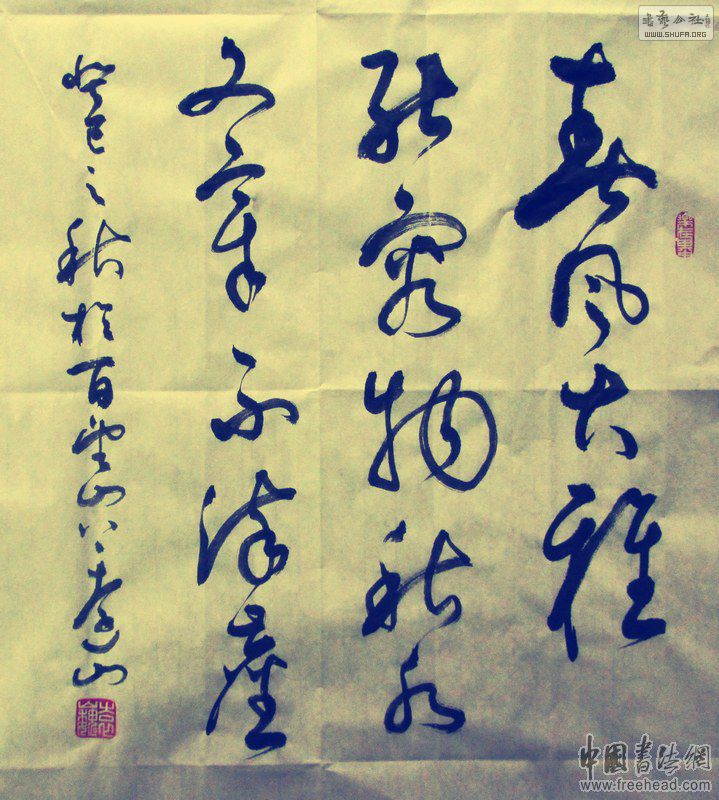 春风大雅
能容物秋水
文章不染尘
癸巳之秋于百望山
書藝公社
WWW.SHUFA.ORG
中國書法網
www.freehead.com